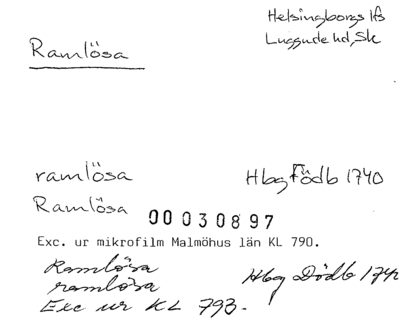 Helsingborgs lfs
Ramlösa
Luggude hd, Sk
ramlösa Hbg Födb 1740
Ramlösa
00 030897
Exc. ur mikrofilm Malmöhus län KL 790.
Ramlösa
ramlösa Hbg Dödb 1742
Exc ur KL 793.